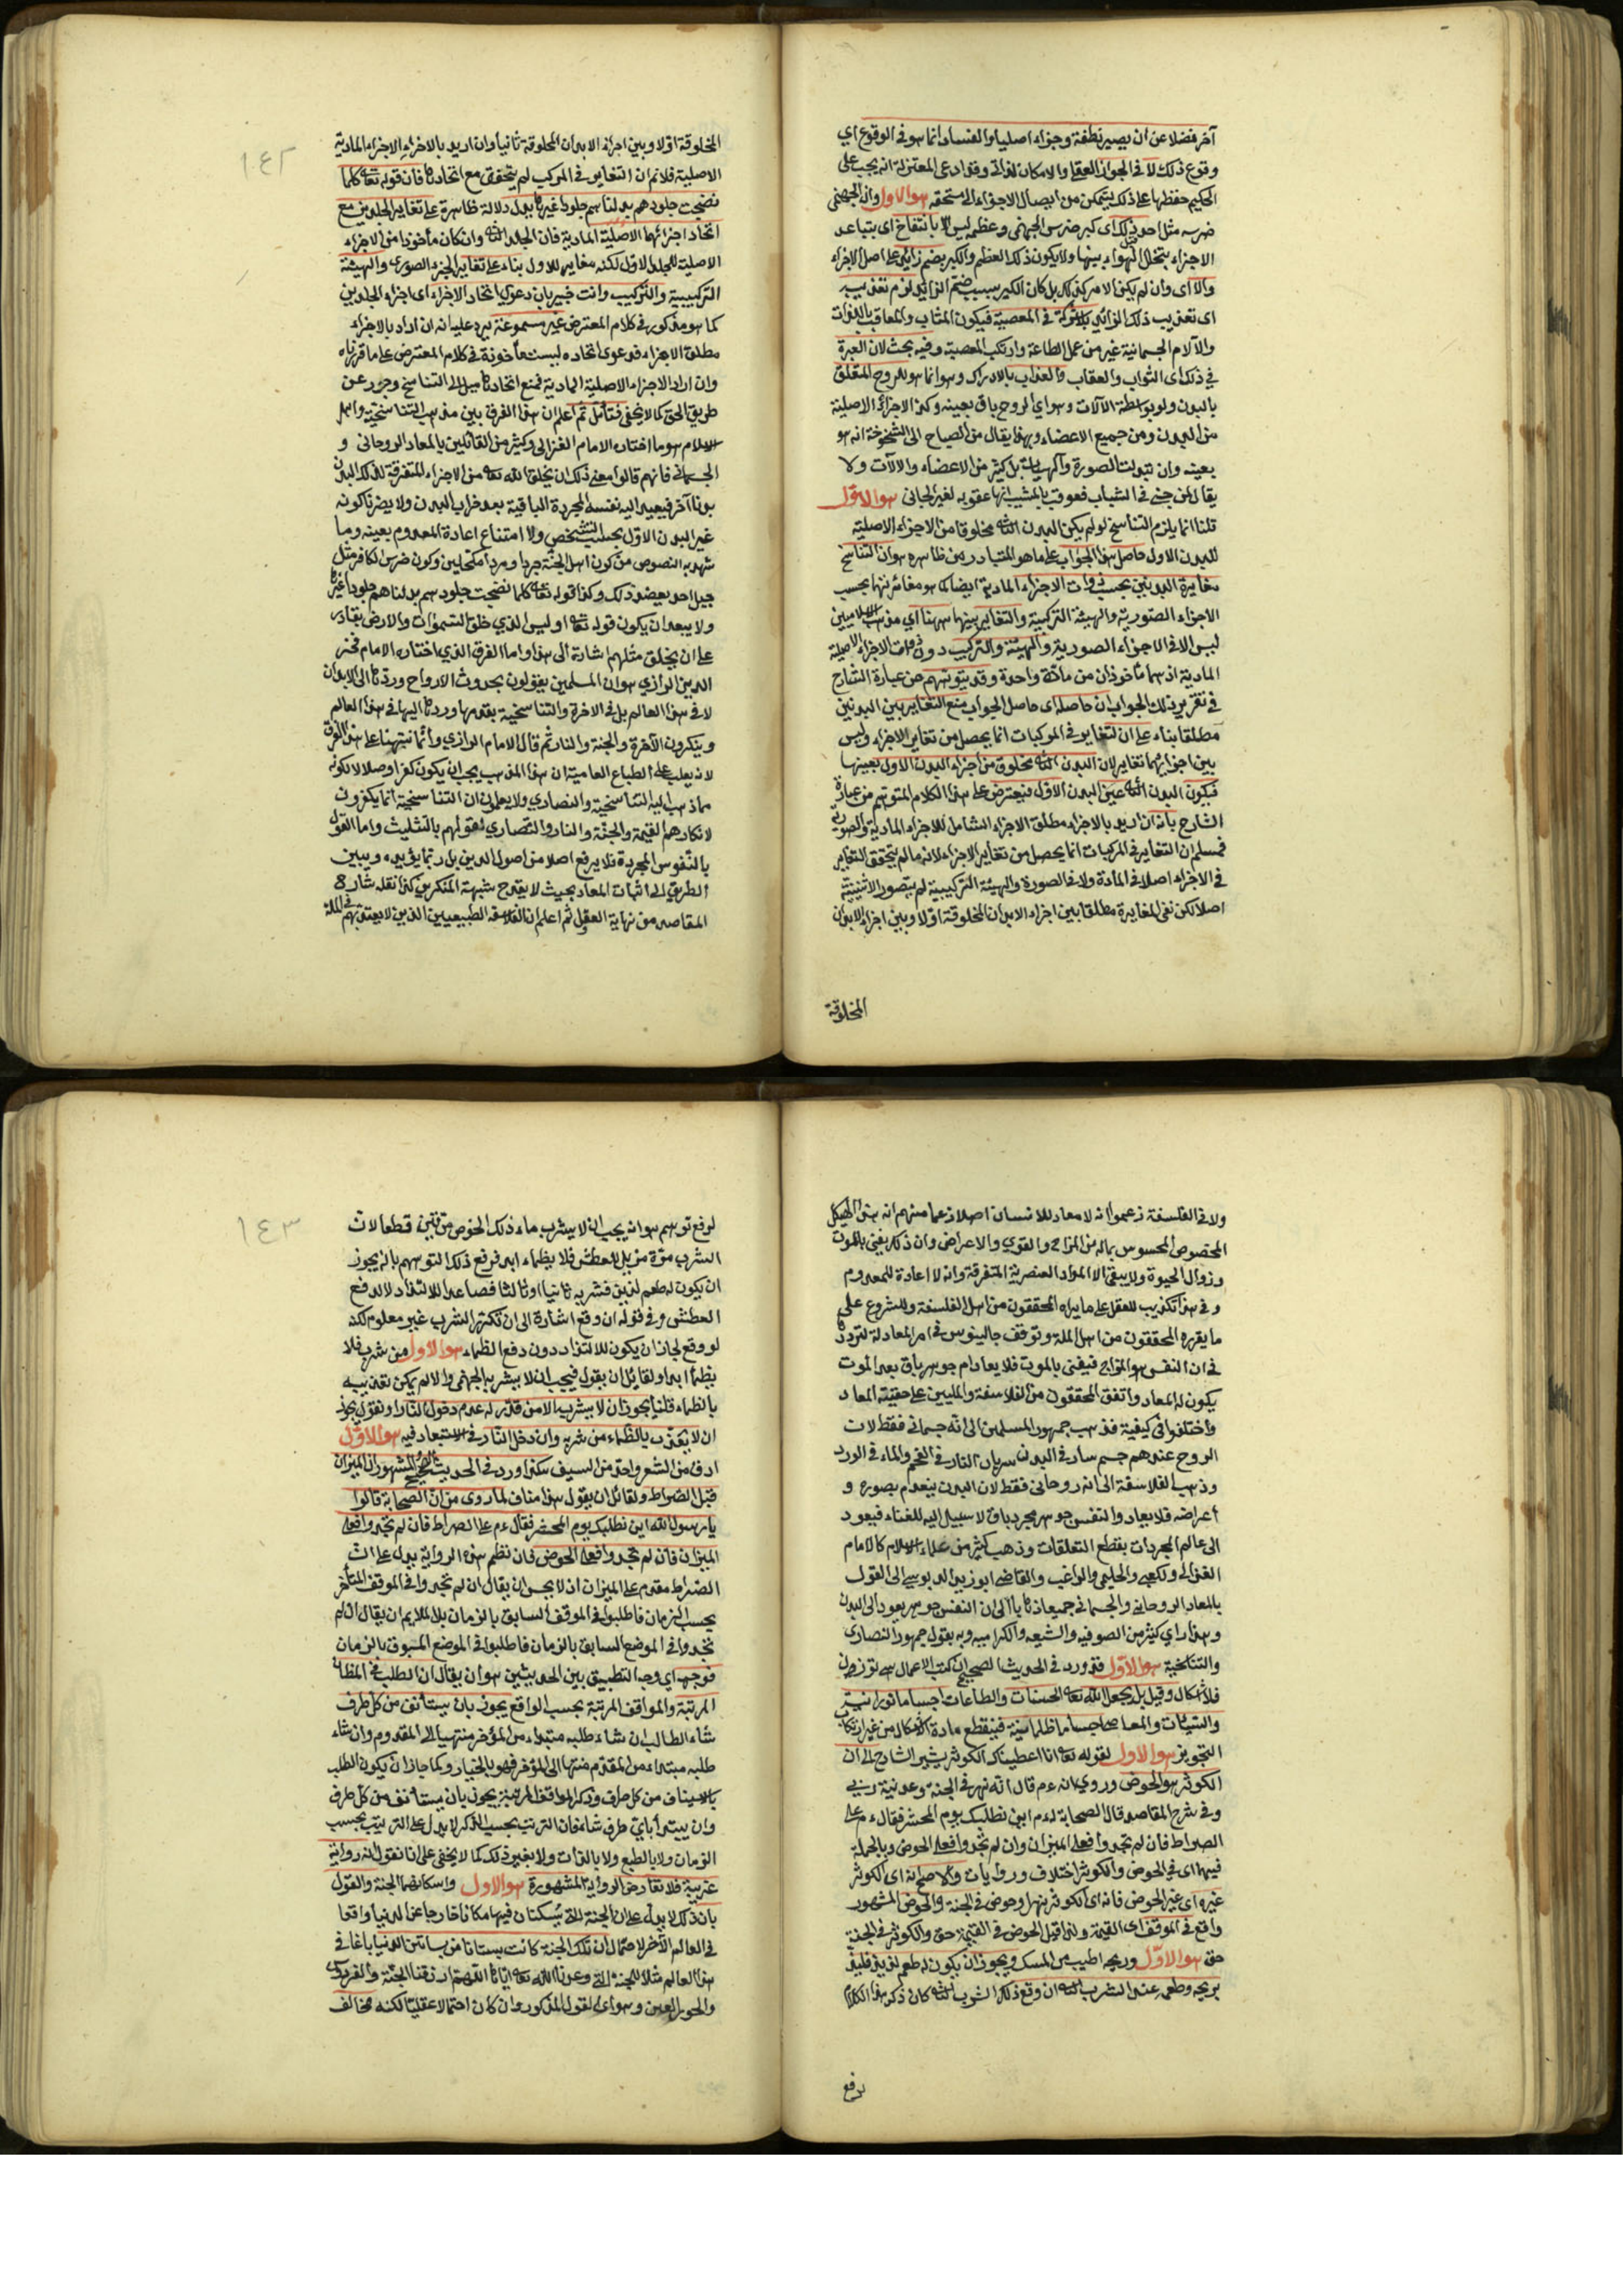 آخر فضلا عن ان يصير نطفة وجزاء اصليا والفساد انما هو في الوقوع اي
وقوع ذلك لا في الجواز العقلي والامكان الذاتي وقد ادعى المعتزلة انه يجب على
الحكيم حفظها عن ذلك ليتمكن من ايصال الاجزاء الى مستحقه هو الاول وان الجهنمي
ضرسه مثل احد ذلك اي كبر ضرس الجهنمي وعظمه ليس الا بانتفاخ اي يتباعد
الاجزاء بتخلل الهواء بينها ولا يكون ذلك العظم والكبر بضم زائد على اصل الاجزاء
والا اي وان لم يكن الامر كذلك بل كان الكبر بسبب ضم الزائد لزم تعذيب
اى تعذيب ذلك الزائد بلا شركة في المعصية فيكون المثاب والمعاقب باللذات
والآلام الجسمانية غير من عمل الطاعة وارتكب المعصية وفيه بحث لان العبرة
في ذلك اى الثواب والعقاب والعذاب بالادراك وهو انما هو للروح المتعلق
بالبدن ولو بواسطة الآلات وهو اي الروح باق بعينه وكذا الاجزاء الاصلية
من البدن ومن جميع الاعضاء ولهذا يقال من الصباح الى الشيخوخة انه هو
بعينه وان تبدلت الصورة والهيئة بل كثير من الاعضاء والآلات ولا
يقال لمن جنى في الشباب فعوقب بالمشيب انها عقوبة لغير الجاني هو الاول
قلنا انما يلزم التناسخ لو لم يكن البدن الثاني مخلوقا من الاجزاء الاصلية
للبدن الاول حاصل هذا الجواب على ما هو المتبادر من ظاهره هو ان التناسخ
مغايرة البدنين بحسب ذوات الاجزاء المادية ايضا كما هو مغايرتها بحسب
الاجزاء الصورية والهيئة التركيبية والتغاير بينها ههنا اي مذهب الاسلاميين
ليس الا في الاجزاء الصورية والهيئة والتركيب دون ذوات الاجزاء الاصلية
المادية اذ هما مأخوذان من مادة واحدة وقد يتوهم من عبارة الشارح
في تقرير ذلك الجواب ان حاصله اى حاصل الجواب منع التغاير بين البدنين
مطلقا بناء على ان التغاير في المركبات انما يحصل من تغاير الاجزاء وليس
بين اجزائهما تغاير لان البدن الثاني مخلوق من اجزاء البدن الاول بعينها
فيكون البدن الثاني عين البدن الاول فيعترض على هذا الكلام المتوهم من عبارة
الشارح بانه ان اريد بالاجزاء مطلق الاجزاء الشامل للاجزاء المادية والصورية
فمسلم ان التغاير في المركبات انما يحصل من تغاير الاجزاء لانه ما لم يتحقق التغاير
في الاجزاء اصلا لا في المادة ولا في الصورة والهيئة التركيبية لم يتصور الاثنينية
اصلا لكن نفى المغايرة مطلقا بين اجزاء الابدان المخلوقة اولا وبين اجزاء الابدان
المخلوقة
١٤٢
المخلوقة اولا وبين اجزاء الابدان المخلوقة ثانيا وان اريد بالاجزاء الاجزاء المادية
الاصلية فلا نم ان التغاير في المركب لم يتحقق مع اتحادها فان قوله تعالى كلما
نضجت جلودهم بدلناهم جلودا غيرها يدل دلالة ظاهرة على تغاير الجلدين مع
اتحاد اجزائهما الاصلية المادية فان الجلد الثاني وان كان مأخوذا من الاجزاء
الاصلية للجلد الاول لكنه مغاير للاول بناء على تغاير الجزء الصورى والهيئة
التركيبية والتركيب وانت خبير بان دعوى اتحاد الاجزاء اى اجزاء الجلدين
كما هو مذكور في كلام المعترض غير مسموعة يرد عليه انه ان اراد بالاجزاء
مطلق الاجزاء فدعوى اتحاده ليست مأخوذة في كلام المعترض على ما قررناه
وان اراد الاجزاء الاصلية المادية فمنع اتحادها ميل الى التناسخ وجور عن
طريق الحق كما لا يخفى فتأمل ثم اعلم ان هذا الفرق بين مذهب التناسخية واهل
الاسلام هو ما اختاره الامام الغزالي وكثير من القائلين بالمعاد الروحانى و
الجسماني فانهم قالوا معنى ذلك ان يخلق الله تعالى من الاجزاء المتفرقة لذلك البدن
بدنا آخر فيعيد اليه نفسه المجردة الباقية بعد خراب البدن ولا يضرنا كونه
غير البدن الاول بحسب الشخص ولا امتناع اعادة المعدوم بعينه وما
شهد به النصوص من كون اهل الجنة جردا مردا مكحلين وكون ضرس الكافر مثل
جبل احد يعضد ذلك وكذا قوله تعالى كلما نضجت جلودهم بدلناهم جلودا غيرها
ولا يبعد ان يكون قوله تعالى اوليس الذي خلق السموات والارض بقادر
على ان يخلق مثلهم اشارة الى هذا واما الفرق الذي اختاره الامام فخر
الدين الرازي هو ان المسلمين يقولون بحدوث الارواح وردها الى الابدان
لا في هذا العالم بل في الاخرة والتناسخية بقدمها وردها اليها في هذا العالم
وينكرون الآخرة والجنة والنار ثم قال الامام الرازي وانما نبهنا على هذا الفرق
لانه يغلب على الطباع العامية ان هذا المذهب يجب ان يكون كفرا وضلالا لكونه
مما ذهب اليه التناسخية والنصارى ولا يعلمون ان التناسخية انما يكفرون
لانكارهم القيمة والجنة والنار والنصارى لقولهم بالتثليث واما القول
بالنفوس المجردة فلا يرفع اصلا من اصول الدين بل ربما يؤيده ويبين
الطريق الى اثبات المعاد بحيث لا يقدح شبهة المنكرين كذا نقله شارح
المقاصد من نهاية العقول ثم اعلم ان الفلاسفة الطبيعيين الذين لا يعتد بهم في الملة
ولا في الفلسفة زعموا انه لا معاد للانسان اصلا زعما منهم انه هذا الهيكل
المخصوص المحسوس بماله من المزاج والقوى والاعراض وان ذلك يفنى بالموت
وزوال الحيوة ولا يبقى الا المواد العنصرية المتفرقة وانه لا اعادة للمعدوم
وفي هذا تكذيب للعقل على ما يراه المحققون من اهل الفلسفة وللشرع على
ما يقرره المحققون من اهل الملة وتوقف جالينوس في امر المعاد لتردده
في ان النفس هو المزاج فيفنى بالموت فلا يعاد ام جوهر باق بعد الموت
يكون له المعاد واتفق المحققون من الفلاسفة والمليين على حقيقة المعاد
واختلفوا في كيفيته فذهب جمهور المسلمين الى انه جسماني فقط لان
الروح عندهم جسم سار في البدن سريان النار في الفحم والماء في الورد
وذهب الفلاسفة الى انه روحاني فقط لان البدن ينعدم بصوره و
اعراضه فلا يعاد والنفس جوهر مجرد باق لا سبيل اليه للفناء فيعود
الى عالم المجردات بقطع التعلقات وذهب كثير من علماء الاسلام كالامام
الغزالي والكعبي والحليمي والراغب والقاضي ابو زيد الدبوسي الى القول
بالمعاد الروحاني والجسماني جميعا ذهابا الى ان النفس جوهر يعود الى البدن
وهذا راي كثير من الصوفيه والشيعه والكراميه وبه يقول جمهور النصارى
والتناسخية هو الاول قد ورد في الحديث الصحيح ان كتب الاعمال هي توزن
فلا اشكال وقيل بل يجعل الله تعالى الحسنات والطاعات اجساما نورانية
والسيئات والمعاصي اجساما ظلمانية فينقطع مادة الاشكال من غير ارتكاب
التجويز هو الاول لقوله تعالى انا اعطيناك الكوثر يشير الشارح الى ان
الكوثر هو الحوض وروي انه ءم قال انه نهر في الجنة وعدنيه ربي
وفي شرح المقاصد قال الصحابة له ءم اين نطلبك يوم المحشر فقال ءم على
الصراط فان لم تجدوا فعلى الميزان وان لم تجدوا فعلى الحوض وبالجملة
فيها اى في الحوض والكوثر اختلاف وروايات والاصح انه اى الكوثر
غيره اى غير الحوض فانه اى الكوثر نهر او حوض في الجنة والحوض المشهور
واقع في الموقف اى القيمة ولذا قيل الحوض في القيمة حق والكوثر في الجنة
حق هو الاول وريحه اطيب من المسك ويجوز ان يكون له طعم لذيذ فليذ
بريحه وطعمه عند الشرب الثاني ان وقع ذلك الشرب الثاني كان ذكر هذا الكلام
لرفع
١٤٣
لرفع توهم هو انه يجب ان لا يشرب ماء ذلك الحوض مرتين قطعا لان
الشرب مرة مزيل للعطش فلا يظماء ابدا فرفع ذلك التوهم بانه يجوز
ان يكون له طعم لذيذ فشربه ثانيا او ثالثا فصاعدا للالتذاذ لا لدفع
العطش وفي قوله ان وقع اشارة الى ان تكثر الشرب غير معلوم لكنه
لو وقع لجاز ان يكون للالتذاذ دون دفع الظماء هو الاول من شرب فلا
يظمأ ابدا ولقائل ان يقول فيجب ان لا يشربه الجهنمي والا لم يمكن تعذيبه
بالظماء قلنا يجوز ان لا يشرب الا من قدر له عدم دخول النار او نقول يجوز
ان لا يعذب بالظماء من شربه وان دخل النار في الاستبعاد فيه هو الاول
ادق من الشعر واحد من السيف هكذا ورد في الحديث الصحيح المشهور ان الميزان
قبل الصراط ولقائل ان يقول هذا مناف لما روى من ان الصحابة قالوا
يا رسول الله اين نطلبك يوم المحشر فقال ءم على الصراط فان لم تجدوا فعلى
الميزان فان لم تجدوا فعلى الحوض فان نظم هذه الرواية يدل على ان
الصراط مقدم على الميزان اذ لا يحسن ان يقال ان لم تجدوا في الموقف المتأخر
بحسب الزمان فاطلبوا في الموقف السابق بالزمان بل الملايم ان يقال ان لم
تجدوا في الموضع السابق بالزمان فاطلبوا في الموضع المسبوق بالزمان
فوجهه اي وجه التطبيق بين الحديثين هو ان يقال ان الطلب في المظان
المرتبة والمواقف المرتبة بحسب الواقع يجوز بان يستأنف من كل طرف
شاء الطالب ان شاء طلبه مبتداء من المؤخر منتهيا الى المقدوم وان شاء
طلبه مبتداء من المقدم منتها الى المؤخر فهو بالخيار وكما جاز ان يكون الطلب
بالاستيناف من كل طرف وذكر المواقف المرتبة يجوز بان يستأنف من كل طرف
وان يبتدأ باي طرف شاء فان الترتيب بحسب الذكر لا يدل على الترتيب بحسب
الزمان ولا بالطبع ولا بالذات ولا بغير ذلك كما لا يخفى على انا نقول انه رواية
غريبة فلا تعارض الرواية المشهورة هو الاول واسكانهما الجنة والقول
بان ذلك لا يدل على ان الجنة التي يسكنان فيها مكانا خارجا عن الدنيا واقعا
في العالم الآخر لاحتمال ان تلك الجنة كانت بستانا من بساتين الدنيا باغا في
هذا العالم مثلا للجنة التي وعدنا الله تعالى ايانا اللهم ارزقنا الجنة والفردوس
والحور العين وهو اى القول المذكور وان كان احتمالا عقليا لكنه مخالف